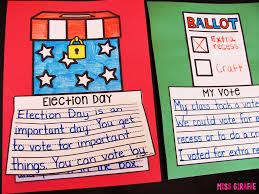 BALLOT
Extra
recess
Craft
ELECTION DAY
Election Day is an
important day. You get
to vote for important
things. You can vote by
in the box.
MY VOTE
My class took a vote
We could vote for e
recess or to do a cr
I voted for extra rec
MISS GIRAFFE